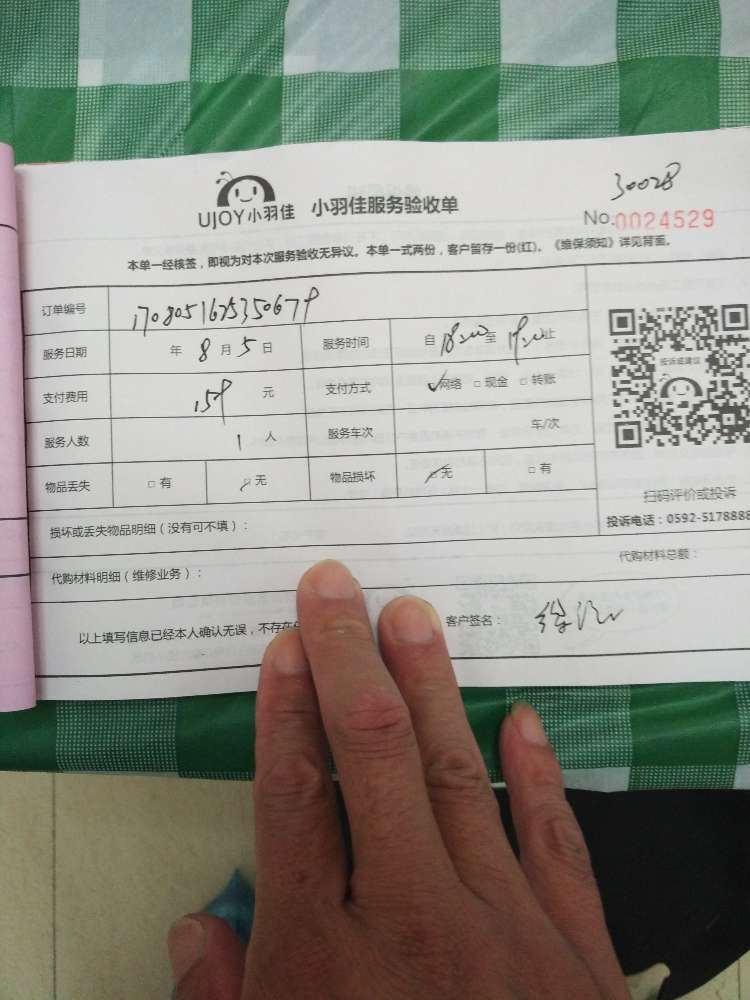 30028
UJOY小羽佳 小羽佳服务验收单
No.0024529
本单一经核签，即视为对本次服务验收无异议。本单一式两份，客户留存一份(红)。《维保须知》详见背面。
订单编号 1708051625350679
服务日期 年 8 月 5 日 服务时间 自 18:00 至 19:00 止
投诉或建议
支付费用 159 元 支付方式 ✓网络 □ 现金 □ 转账
服务人数 1 人 服务车次 车/次
物品丢失 □ 有 □ 无 物品损坏 □ 无 □ 有
扫码评价或投诉
投诉电话：0592-5178888
损坏或丢失物品明细（没有可不填）：
代购材料明细（维修业务）： 代购材料总额：
以上填写信息已经本人确认无误，不存在 客户签名：